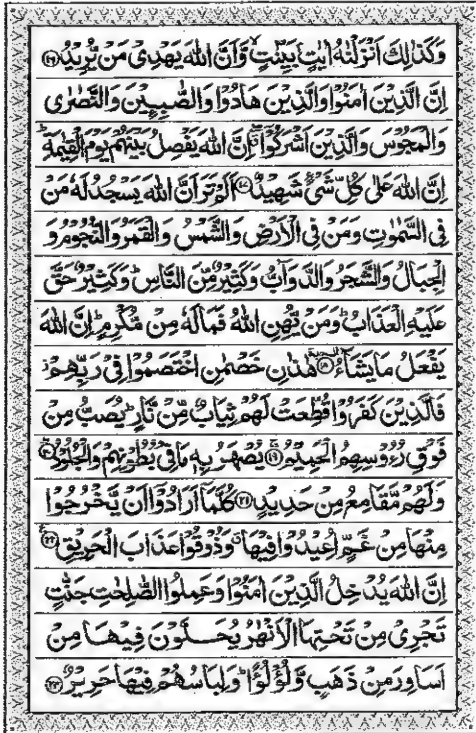 وَكَذٰلِكَ اَنْزَلْنٰهُ اٰيٰتٍۭ بَيِّنٰتٍ ۙ وَّاَنَّ اللّٰهَ يَهْدِىْ مَنْ يُّرِيْدُ ﴿۱۶﴾
اِنَّ الَّذِيْنَ اٰمَنُوْا وَالَّذِيْنَ هَادُوْا وَالصّٰبِـِٕيْنَ وَالنَّصٰرٰى
وَالْمَجُوْسَ وَالَّذِيْنَ اَشْرَكُوْٓا ۖ اِنَّ اللّٰهَ يَفْصِلُ بَيْنَهُمْ يَوْمَ الْقِيٰمَةِ ؕ
اِنَّ اللّٰهَ عَلٰى كُلِّ شَىْءٍ شَهِيْدٌ ﴿۱۷﴾ اَلَمْ تَرَ اَنَّ اللّٰهَ يَسْجُدُ لَهٗ مَنْ
فِى السَّمٰوٰتِ وَمَنْ فِى الْاَرْضِ وَالشَّمْسُ وَالْقَمَرُ وَالنُّجُوْمُ وَ
الْجِبَالُ وَالشَّجَرُ وَالدَّوَآبُّ وَكَثِيْرٌ مِّنَ النَّاسِ ؕ وَكَثِيْرٌ حَقَّ
عَلَيْهِ الْعَذَابُ ؕ وَمَنْ يُّهِنِ اللّٰهُ فَمَا لَهٗ مِنْ مُّكْرِمٍ ؕ اِنَّ اللّٰهَ
يَفْعَلُ مَا يَشَآءُ ﴿۱۸﴾ هٰذٰنِ خَصْمٰنِ اخْتَصَمُوْا فِىْ رَبِّهِمْ ۫
فَالَّذِيْنَ كَفَرُوْا قُطِّعَتْ لَهُمْ ثِيَابٌ مِّنْ نَّارٍ ؕ يُصَبُّ مِنْ
فَوْقِ رُءُوْسِهِمُ الْحَمِيْمُ ﴿۱۹﴾ يُصْهَرُ بِهٖ مَا فِىْ بُطُوْنِهِمْ وَالْجُلُوْدُ ﴿۲۰﴾
وَلَهُمْ مَّقَامِعُ مِنْ حَدِيْدٍ ﴿۲۱﴾ كُلَّمَآ اَرَادُوْٓا اَنْ يَّخْرُجُوْا
مِنْهَا مِنْ غَمٍّ اُعِيْدُوْا فِيْهَا ۗ وَذُوْقُوْا عَذَابَ الْحَرِيْقِ ﴿۲۲﴾
اِنَّ اللّٰهَ يُدْخِلُ الَّذِيْنَ اٰمَنُوْا وَعَمِلُوا الصّٰلِحٰتِ جَنّٰتٍ
تَجْرِىْ مِنْ تَحْتِهَا الْاَنْهٰرُ يُحَلَّوْنَ فِيْهَا مِنْ
اَسَاوِرَ مِنْ ذَهَبٍ وَّلُؤْلُؤًا ؕ وَلِبَاسُهُمْ فِيْهَا حَرِيْرٌ ﴿۲۳﴾